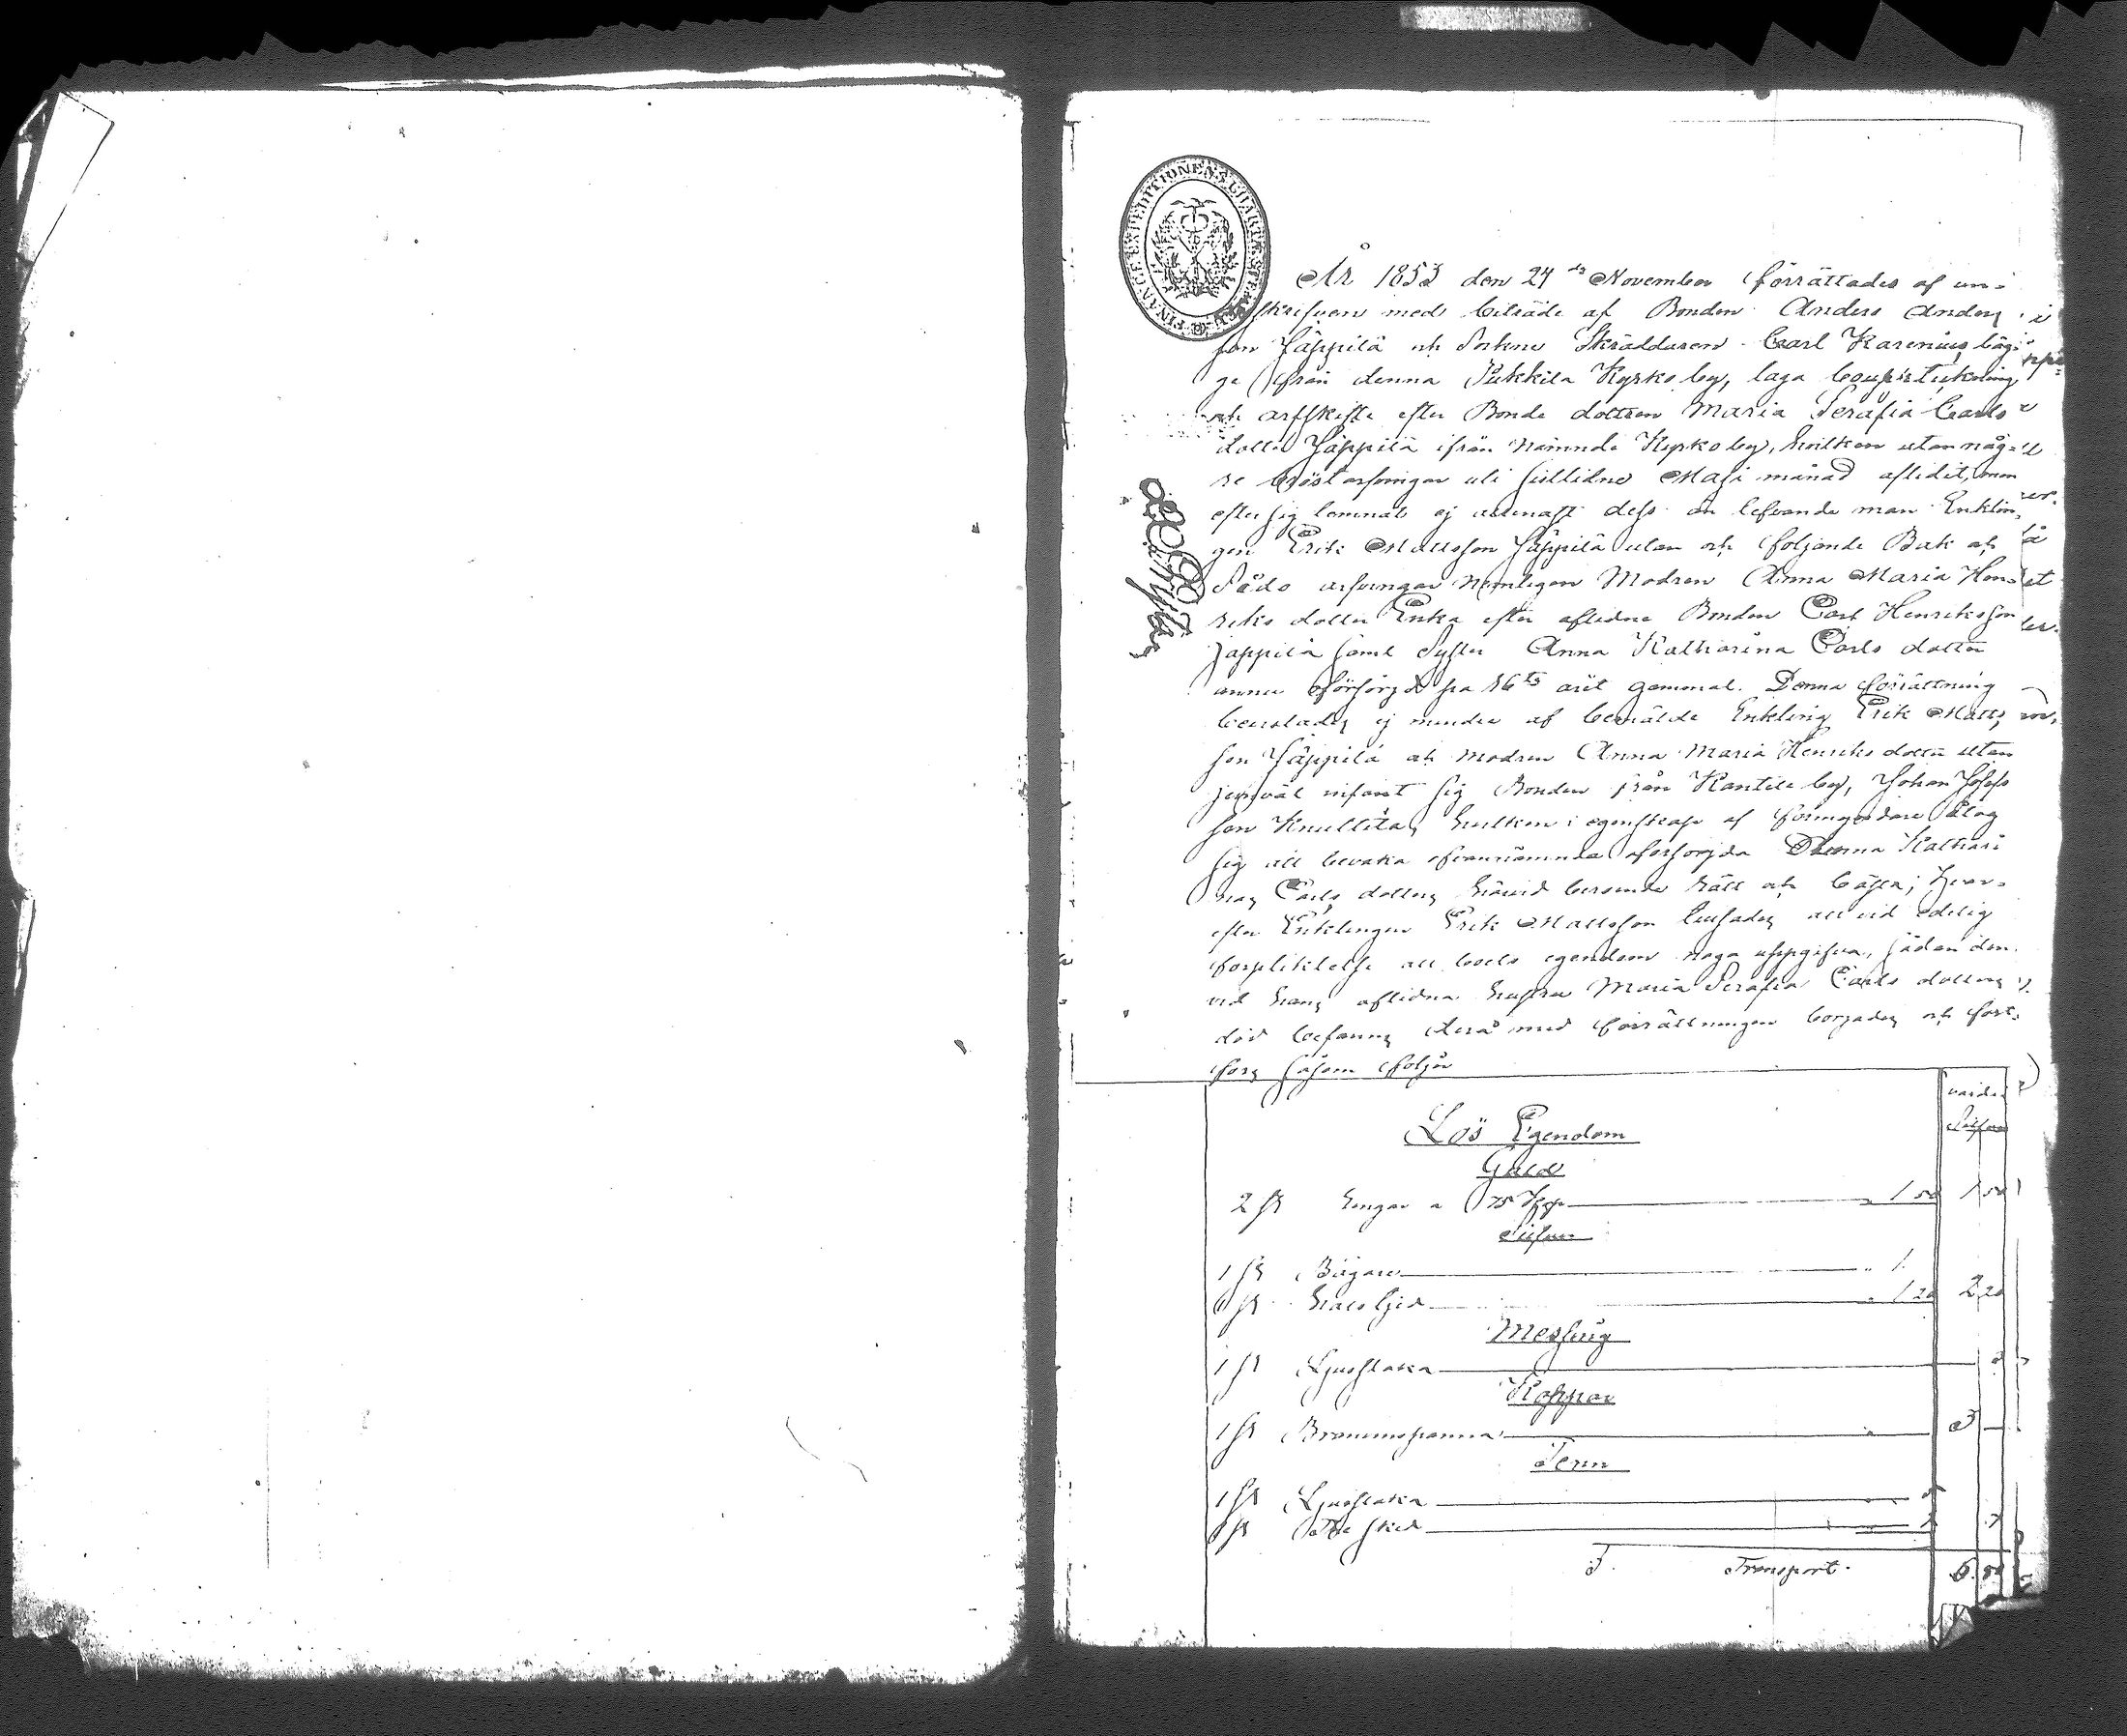 FINANCE EXPEDITIONENS CHARTÆ STEMPEL
År 1853 den 24de November förrättades af un-
skrifven med biträde af Bonden Anders Anders
son Jäppilä och Sockne Skräddaren Carl Karenius bäg-
ge från denna Pukkila Kyrkoby, laga
och arfskifte efter Bonde dottren Maria Serafia Carls
dotter Jäppilä ifrån nämnde Kyrkoby, hvilken utan någ-
re bröstarfvingar uti sistlidne Maji månad aflidit, men
efter sig lemnat ej allenast dess än lefvande man Enklin-
gen Erik Mattsson Jäppilä utan och följande Bak och
Sido arfvingar nemligen Modren Anna Maria Hen-
riks dotter Enka efter aflidne Bonden Carl Henriksson
Jäppilä samt Syster Anna Katharina Carls dotter
ännu oförsörjd på 16te året gammal. Denna förrättning
bevistades ej mindre af bemälde Enkling Erik Matts
son Jäppilä och modren Anna Maria Henriks dotter utan
jemväl infant sig Bonden från Kantele by, Johan Josefs
son Knuttila, hvilken i egenskap af förmyndare åtog
sig att bevaka ofvannämnda oförsörjda Anna Kathari
nas Carls dotters härvid beroende rätt och bästa; hvar-
efter Enklingen Erik Mattsson tillsades att vid edelig
förpliktelse all boets egendom noga uppgifva, sådan den
vid hans aflidna hustru Maria Serafia Carls dotters
död befanns derå med förrättningen börjades och fort-
fors såsom följer
Lös Egendom
Guld
2 st Ringar a 75 Kop 1 50 1 50
Silfver
1 st Bägare 1
1 st Halskjed 1 20 2 20
Messing
1 st Ljusstaka
Koppar
1 st Brännvinspanna
Tenn
1 st Ljusstaka
1 st sked
Transport